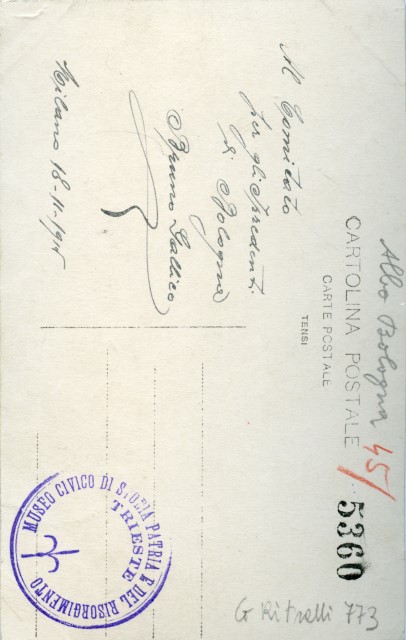 Albo Bologna 45/
CARTOLINA POSTALE
5360
CARTE POSTALE
TENSI
Al Comitato
per gli Irredenti
di Bologna
Bruno Gallico
Milano 16-11-915
MUSEO CIVICO DI STORIA PATRIA E DEL RISORGIMENTO
TRIESTE
G Ritratti 773